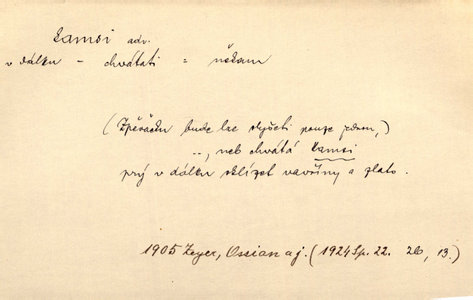 kamsi adv.
v dálku – chvátati = někam
(Zpěvačku bude lze slyšeti pouze jednou,)
.., neb chvátá kamsi
prý v dálku sklízet vavříny a zlato.
1905 Zeyer, Ossian aj. (1924 Sp. 22. 26, 13.)